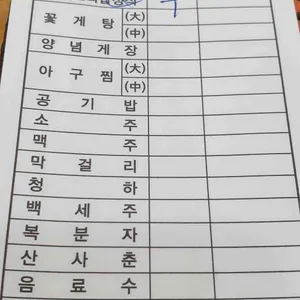 꽃게탕 (大)
(中)
양념게장
아구찜 (大)
(中)
공기밥
소주
맥주
막걸리
청하
백세주
복분자
산사춘
음료수